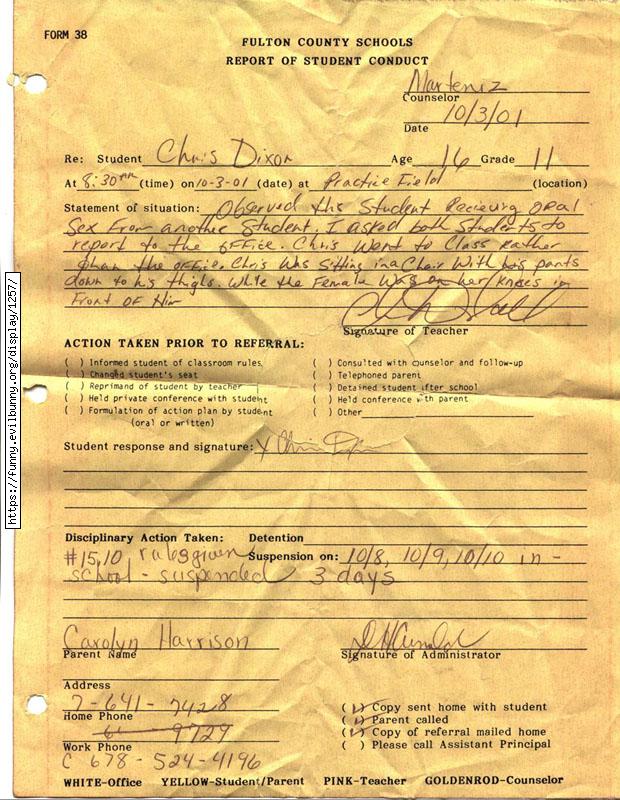 FORM 38
FULTON COUNTY SCHOOLS
REPORT OF STUDENT CONDUCT
Marteniz
Counselor
10/3/01
Date
Re: Student Chris Dixon Age 16 Grade 11
At 8:30 AM (time) on 10-3-01 (date) at Practice Field (location)
Statement of situation: Observed this Student Recieving oral
Sex From another Student. I asked both Students to
report to the office. Chris Went to Class Rather
than the office. Chris Was Sitting in a Chair With his pants
down to his thighs. While the Female Was on her knees in
Front OF Him
Signature of Teacher
ACTION TAKEN PRIOR TO REFERRAL:
( ) Informed student of classroom rules ( ) Consulted with counselor and follow-up
( ) Changed student's seat ( ) Telephoned parent
( ) Reprimand of student by teacher ( ) Detained student after school
( ) Held private conference with student ( ) Held conference with parent
( ) Formulation of action plan by student ( ) Other
(oral or written)
Student response and signature: X Chris
Disciplinary Action Taken: Detention
#15,10 rules given Suspension on: 10/8, 10/9, 10/10 in-
school - suspended 3 days
Carolyn Harrison
Parent Name Signature of Administrator
Address
7-641-7428 (✓) Copy sent home with student
Home Phone (✓) Parent called
9729 (✓) Copy of referral mailed home
Work Phone ( ) Please call Assistant Principal
C 678-524-4196
WHITE-Office YELLOW-Student/Parent PINK-Teacher GOLDENROD-Counselor
https://funny.evilbunny.org/display/1257/